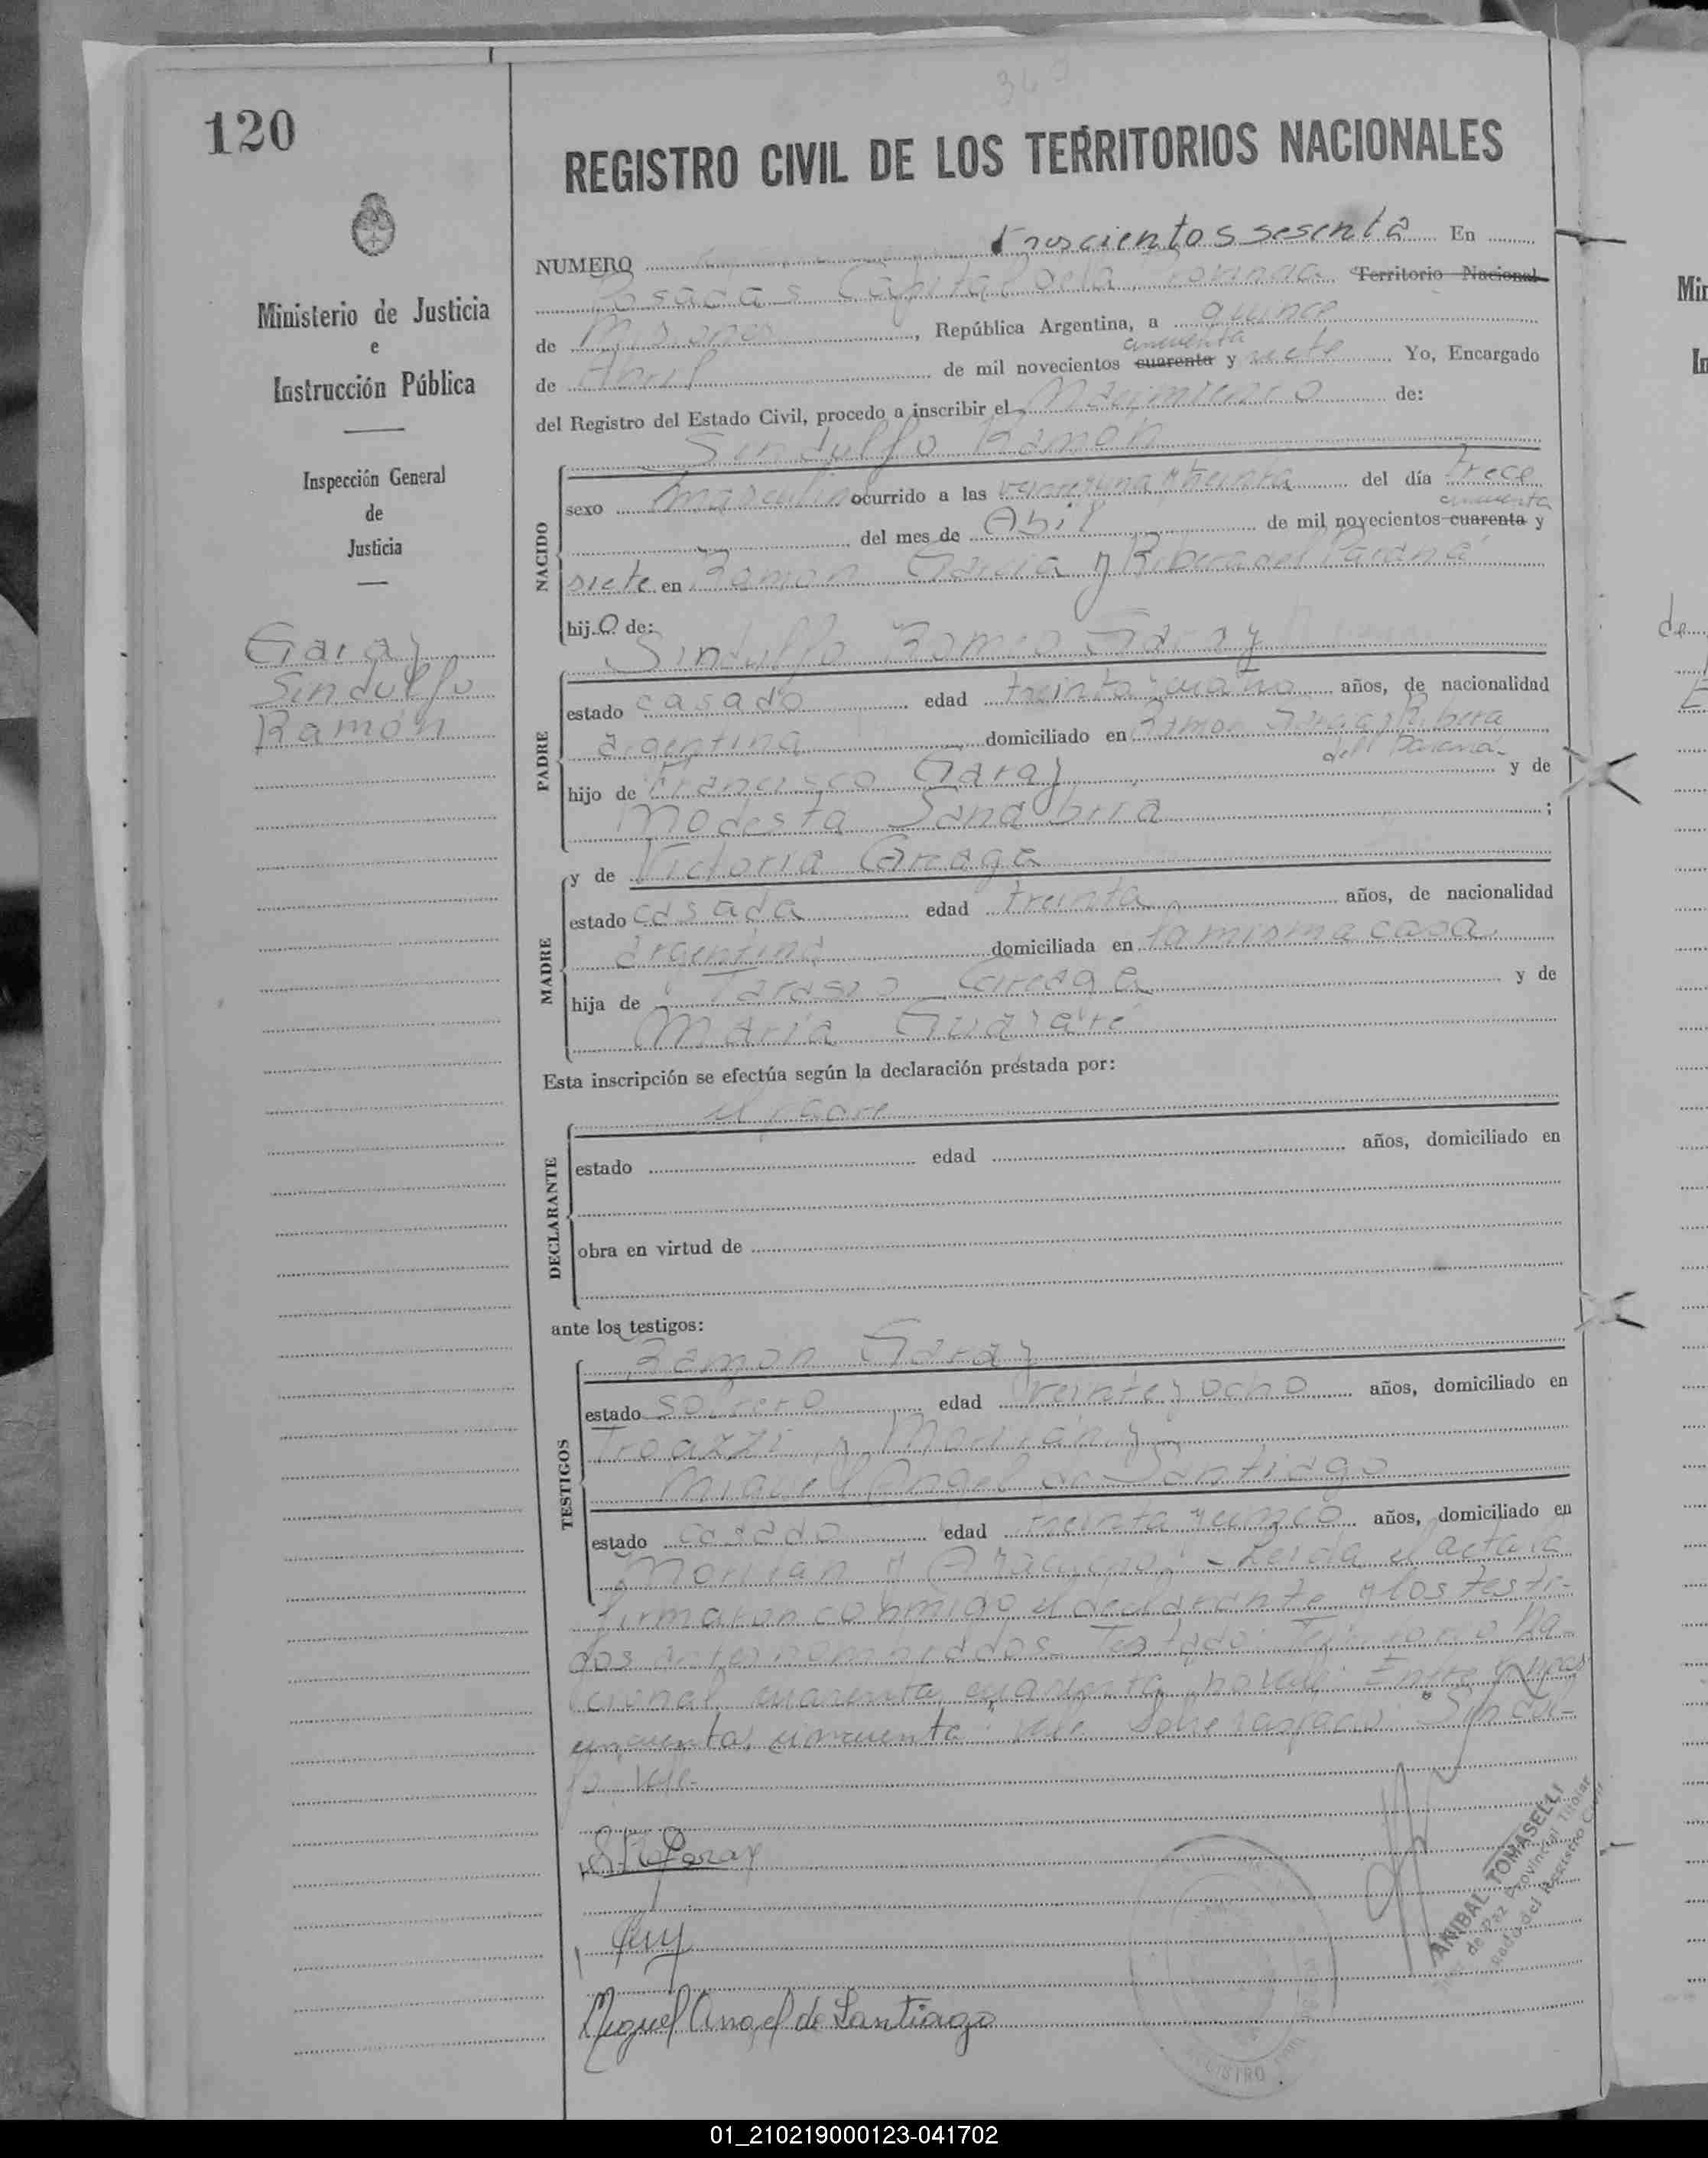 120
REGISTRO CIVIL DE LOS TERRITORIOS NACIONALES
Ministerio de Justicia
e
Instrucción Pública
Inspección General
de
Justicia
Garay
Sindulfo
Ramón
NUMERO trescientos sesenta En
Posadas Capital de la Provincia Territorio Nacional
de Misiones, República Argentina, a quince
cincuenta
de Abril de mil novecientos cuarenta y siete Yo, Encargado
del Registro del Estado Civil, procedo a inscribir el Nacimiento de:
Sindulfo Ramon
NACIDO
sexo masculino ocurrido a las veintiuna y treinta del día trece
cincuenta
del mes de Abil de mil novecientos cuarenta y
siete en Ramon Garcia y Ribera del Paraná
hijo de:
Sindulfo Romeo Garay
PADRE
estado casado edad treinta y cuatro años, de nacionalidad
argentina domiciliado en Ramon Garcia y Ribera
del Paraná
hijo de Francisco Garay y de
Modesta Sanabria ;
MADRE
y de Victoria
estado casada edad treinta años, de nacionalidad
argentina domiciliada en la misma casa
hija de y de
Maria
Esta inscripción se efectúa según la declaración prestada por:
el padre
DECLARANTE
estado edad años, domiciliado en
obra en virtud de
ante los testigos:
TESTIGOS
Ramon Garay
estado soltero edad veinte y ocho años, domiciliado en
y
Miguel Angel de Santiago
estado casado edad treinta y cinco años, domiciliado en
y Leida el acta la
firmaron conmigo el declarante y los testi-
gos antes nombrados. Testado: Territorio Na-
cional, cuarenta, cuarenta, no vale. Entre lineas
cincuenta, cincuenta: vale. Sobre raspado: Sindul-
fo: Vale.
Garay
Miguel Angel de Santiago
ANIBAL TOMASELLI
Juez de Paz Provincial Titular
Encargado del Registro Civil
REGISTRO
01_210219000123-041702